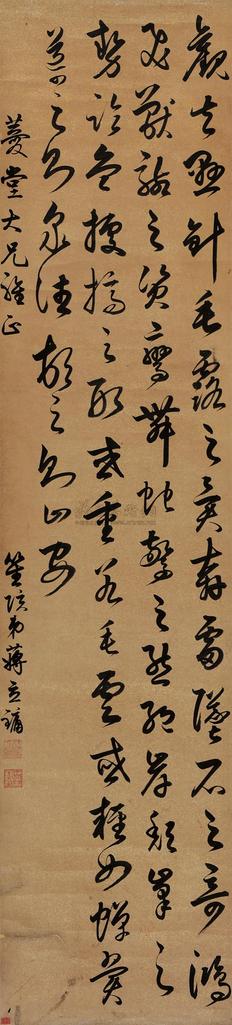 觀夫懸針垂露之異奔雷墜石之奇鴻
飛獸駭之資鸞舞蛇驚之態絕岸頹峯之
勢臨危據槁之形或重若崩雲或輕如蟬翼
導之則泉注頓之則山安
堂大兄雅正
笙陔弟蔣立鏞